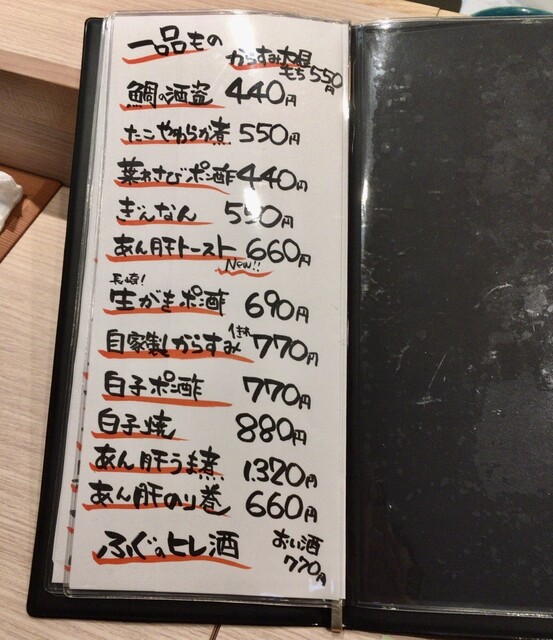 一品もの
からすみ大根もち 550円
鯛の酒盗 440円
たこやわらか煮 550円
葉わさびポン酢 440円
ぎんなん 550円
あん肝トースト 660円
New!!
長崎!
生がきポン酢 690円
自家製からすみ 770円
白子ポン酢 770円
白子焼 880円
あん肝うま煮 1320円
あん肝のり巻 660円
ふぐのヒレ酒
770円